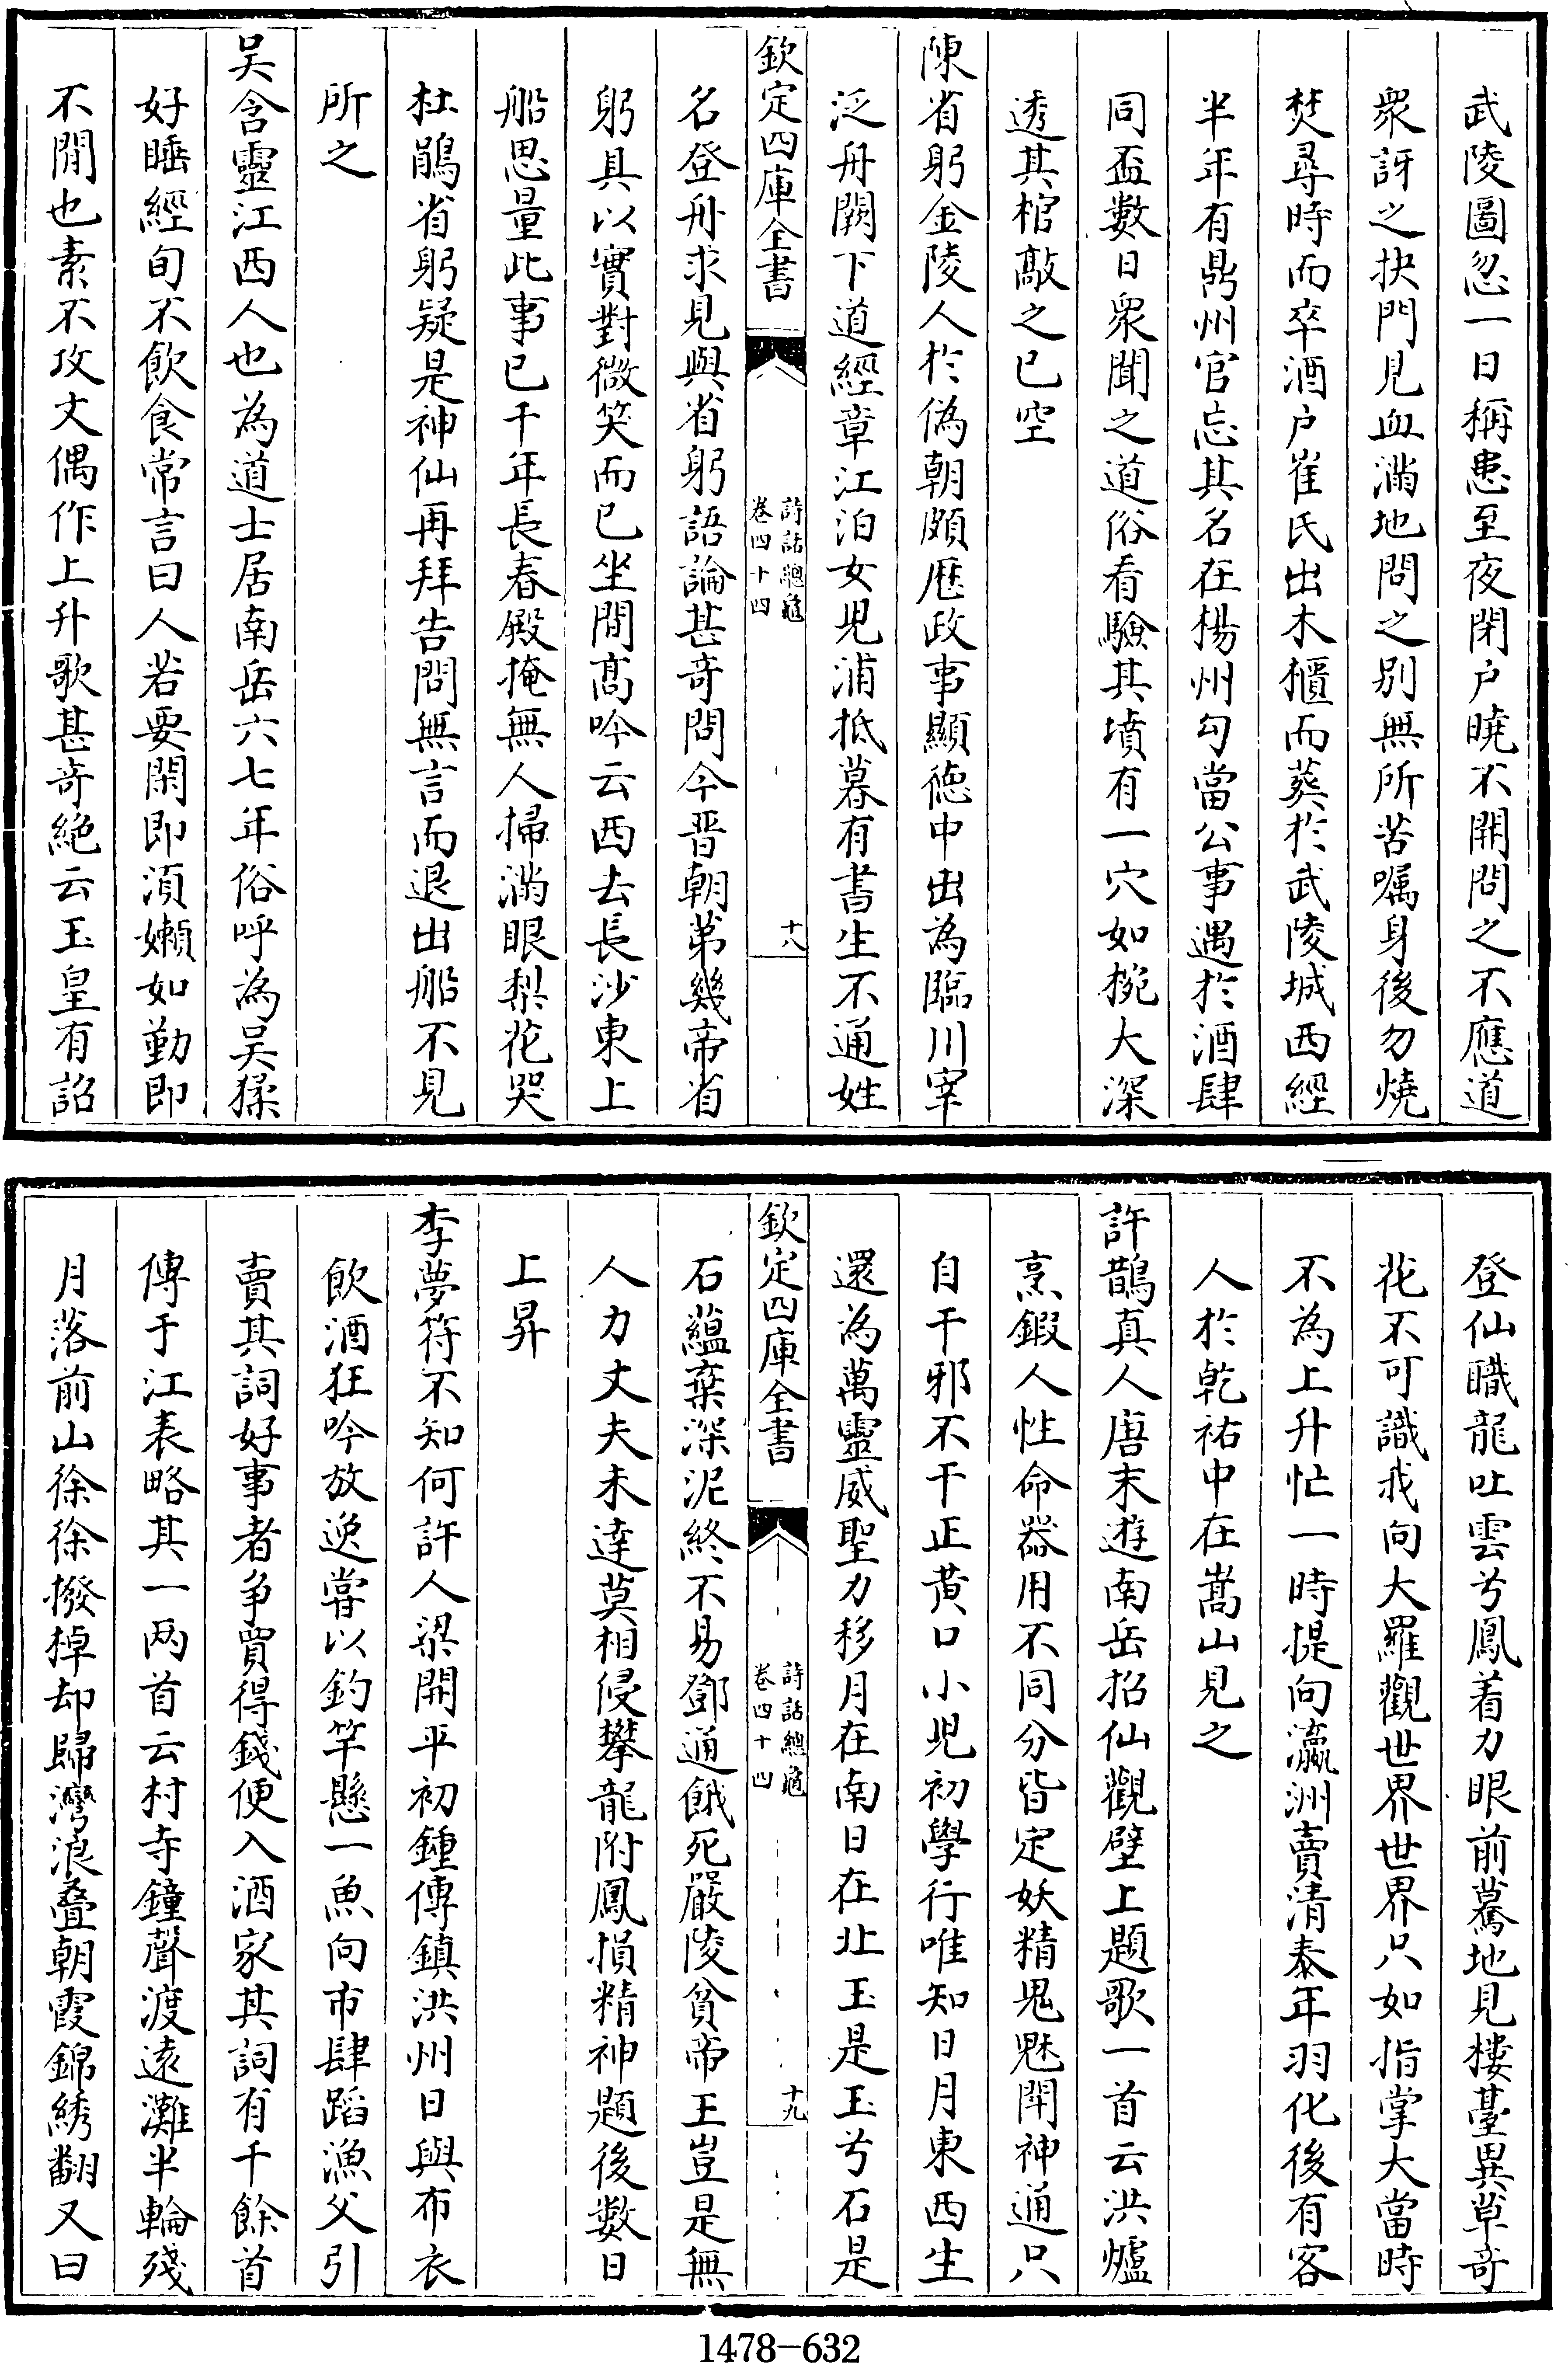 武陵圖忽一日稱患至夜閉户曉不開問之不應道
衆訝之抉門見血滿地問之别無所苦囑身後勿燒
焚尋時而卒酒户崔氏出木櫃而葬於武陵城西經
半年有鼎州官忘其名在楊州勾當公事遇於酒肆
同盃數日衆聞之道俗看驗其墳有一穴如椀大深
透其棺敲之已空
陳省躬金陵人於偽朝頗歴政事顯德中出為臨川宰
泛舟闕下道經章江泊女兒浦抵暮有書生不通姓
欽定四庫全書
詩話總龜
卷四十四
十八
名登舟求見與省躬語論甚竒問今晋朝第幾帝省
躬具以實對微笑而已坐間髙吟云西去長沙東上
船思量此事已千年長春殿掩無人掃滿眼梨花哭
杜鵑省躬疑是神仙再拜告問無言而退出船不見
所之
吴含靈江西人也為道士居南岳六七年俗呼為吴猱
好睡經旬不飲食常言曰人若要閑即須懶如勤即
不閒也素不攻文偶作上升歌甚竒絶云玉皇有詔
登仙職龍吐雲兮鳳着力眼前驀地見樓臺異草竒
花不可識我向大羅觀世界世界只如指掌大當時
不為上升忙一時提向瀛洲賣清泰年羽化後有客
人於乾祐中在嵩山見之
許鵲真人唐末遊南岳招仙觀壁上題歌一首云洪爐
烹鍜人性命器用不同分皆定妖精鬼魅鬭神通只
自干邪不干正黄口小兒初學行唯知日月東西生
還為萬靈威聖力移月在南日在北玉是玉兮石是
欽定四庫全書
詩話總龜
卷四十四
十九
石藴棄深泥終不易鄧通餓死嚴陵貧帝王豈是無
人力丈夫未達莫相侵攀龍附鳳損精神題後數日
上昇
李夢符不知何許人梁開平初鍾傳鎮洪州日與布衣
飲酒狂吟放逸嘗以釣竿懸一魚向市肆蹈漁父引
賣其詞好事者争買得錢便入酒家其詞有千餘首
傳于江表略其一兩首云村寺鐘聲渡遠灘半輪殘
月落前山徐徐撥棹却歸灣浪叠朝霞錦綉翻又曰
1478-632